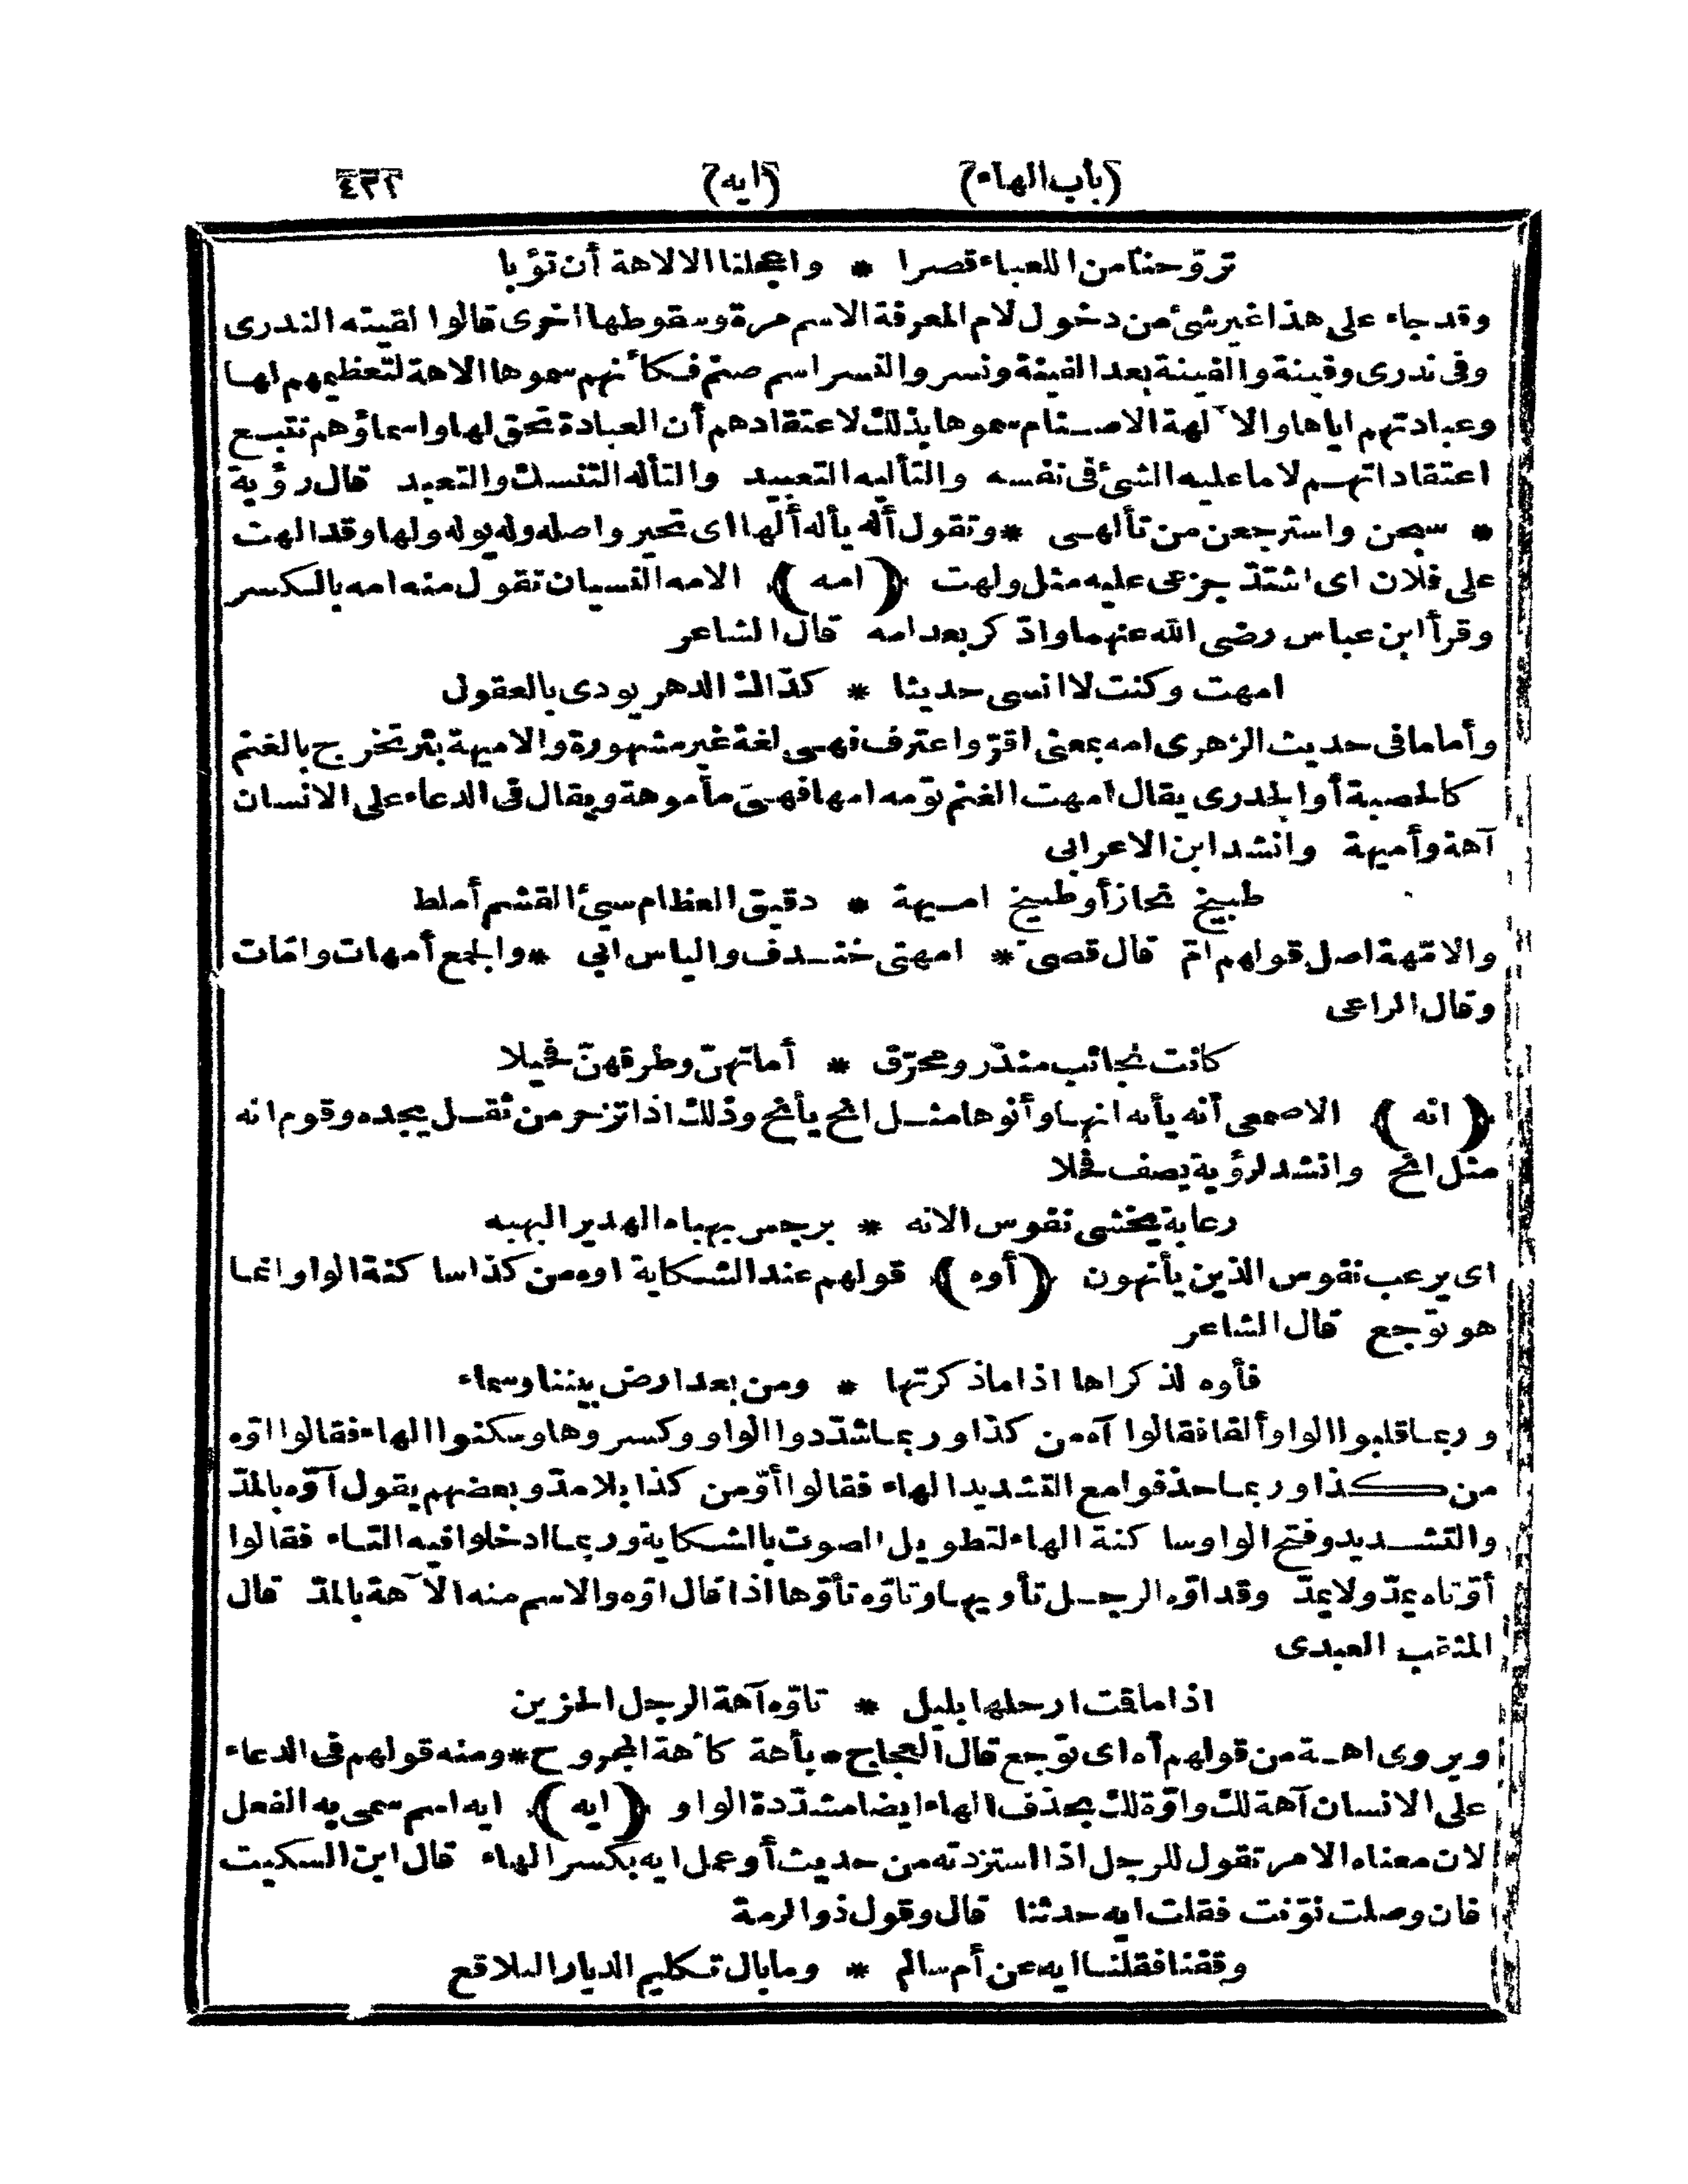 (باب الهاء) (ايه) ٤٣٢
تروّحنا من اللعباء قصرا * واعجلنا الالاهة أن تؤبا
وقد جاء على هذا غير شئ من دخول لام المعرفة الاسم مرة وسقوطها اخرى قالوا لقيته الندرى
وفى ندرى وفينة والفينة بعد الفينة ونسر والنسر اسم صنم فكأنهم سموها الالاهة لتعظيمهم لها
وعبادتهم اياها والآلهة الاصنام سموها بذلك لاعتقادهم أن العبادة تحق لها واسماؤهم تتبع
اعتقاداتهم لا ما عليه الشئ فى نفسه والتأليه التعبيد والتأله التنسك والتعبد قال رؤبة
* سبحن واسترجعن من تألهى * وتقول أله يأله ألها اى تحير واصله وله يوله ولها وقد الهت
على فلان اى اشتدّ جزعى عليه مثل ولهت (امه) الامه النسيان تقول منه امه بالكسر
وقرأ ابن عباس رضى الله عنهما وادّكر بعد امه قال الشاعر
امهت وكنت لا انسى حديثا * كذاك الدهر يودى بالعقول
وأما ما فى حديث الزهرى امه بمعنى اقرّ واعترف فهى لغة غير مشهورة والاميهة بثر تخرج بالغنم
كالحصبة أو الجدرى يقال امهت الغنم تؤمه امها فهى مأموهة ويقال فى الدعاء على الانسان
آهة وأميهة وانشد ابن الاعرابى
طبيخ نحاز أو طبيخ اميهة * دقيق العظام سيئ القشم أملط
والامّهة اصل قولهم امّ قال قصى * امهتى خندف والياس ابى * والجمع أمهات وامّات
وقال الراعى
كانت نجائب منذر ومحرّق * أماتهنّ وطرقهنّ فحيلا
(انه) الاصمعى أنه يأنه انها وأنوها مثل انح يأنح وذلك اذا تزحر من ثقل يجده وقوم انه
مثل انح وانشد لرؤبة يصف فحلا
رعابة يخشى نفوس الانه * برجس بهباه الهدير البهبه
اى يرعب نفوس الذين يأنهون (أوه) قولهم عند الشكاية اوه من كذا ساكنة الواو انما
هو توجع قال الشاعر
فأوه لذكراها اذا ما ذكرتها * ومن بعد ارض بيننا وسماء
وربما قلبوا الواو ألفا فقالوا آه من كذا وربما شدّدوا الواو وكسروها وسكنوا الهاء فقالوا اوّه
من كذا وربما حذفوا مع التشديد الهاء فقالوا أوّ من كذا بلا مدّ وبعضهم يقول آوّه بالمدّ
والتشديد وفتح الواو ساكنة الهاء لتطويل الصوت بالشكاية وربما ادخلوا فيه التاء فقالوا
أوّتاه يمدّ ولا يمدّ وقد اوّه الرجل تأويها وتاوّه تأوّها اذا قال اوّه والاسم منه الآهة بالمدّ قال
المثقب العبدى
اذا ما قمت ارحلها بليل * تاوّه آهة الرجل الحزين
ويروى اهة من قولهم أه اى توجع قال العجاج * بأهة كأهة المجروح * ومنه قولهم فى الدعاء
على الانسان آهة لك واوّة لك بحذف الهاء ايضا مشدّدة الواو (ايه) ايه اسم سمى به الفعل
لان معناه الامر تقول للرجل اذا استزدته من حديث أو عمل ايه بكسر الهاء قال ابن السكيت
فان وصلت نوّنت فقلت ايه حدثنا قال وقول ذو الرمة
وقفنا فقلنا ايه عن أم سالم * وما بال تكليم الديار البلاقع